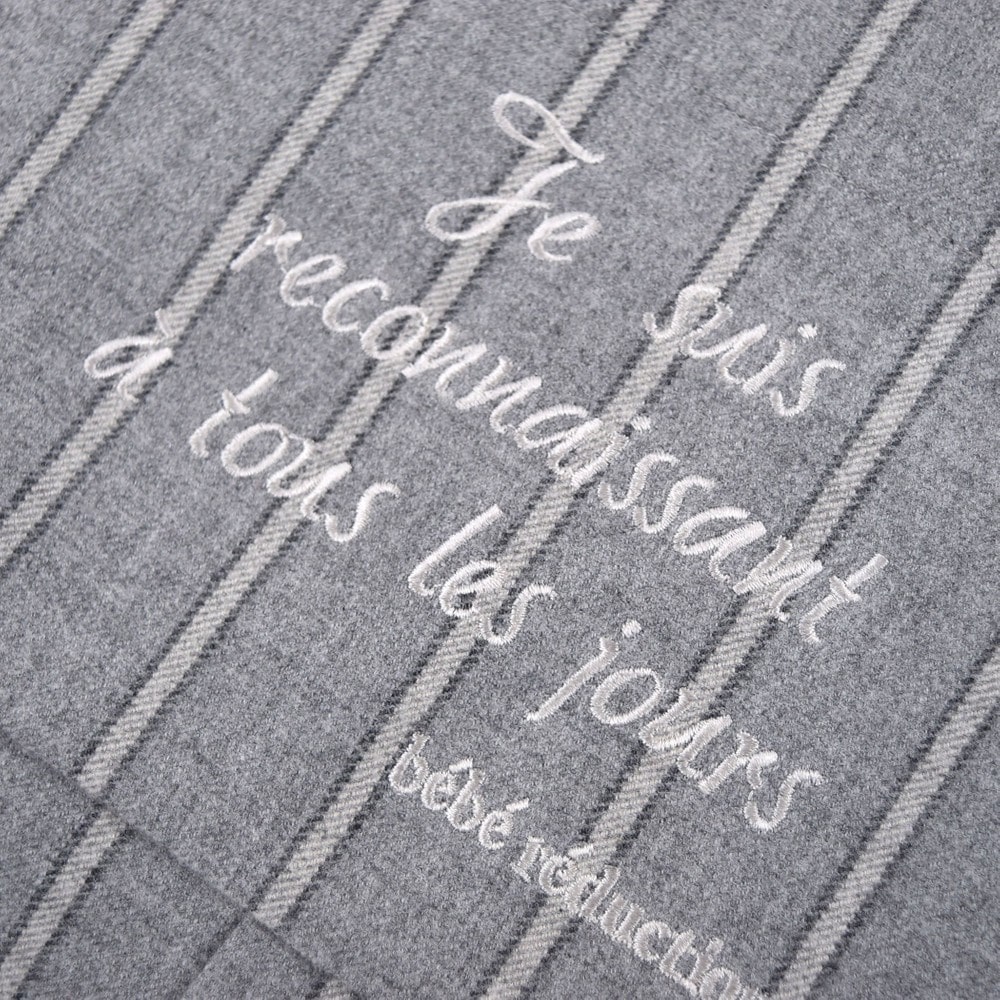 Je suis
reconnaissant
à tous les jours
bébé réduction